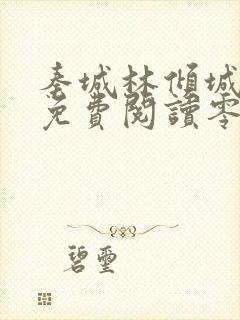 秦城林傾城
免費閱讀零
碧璽